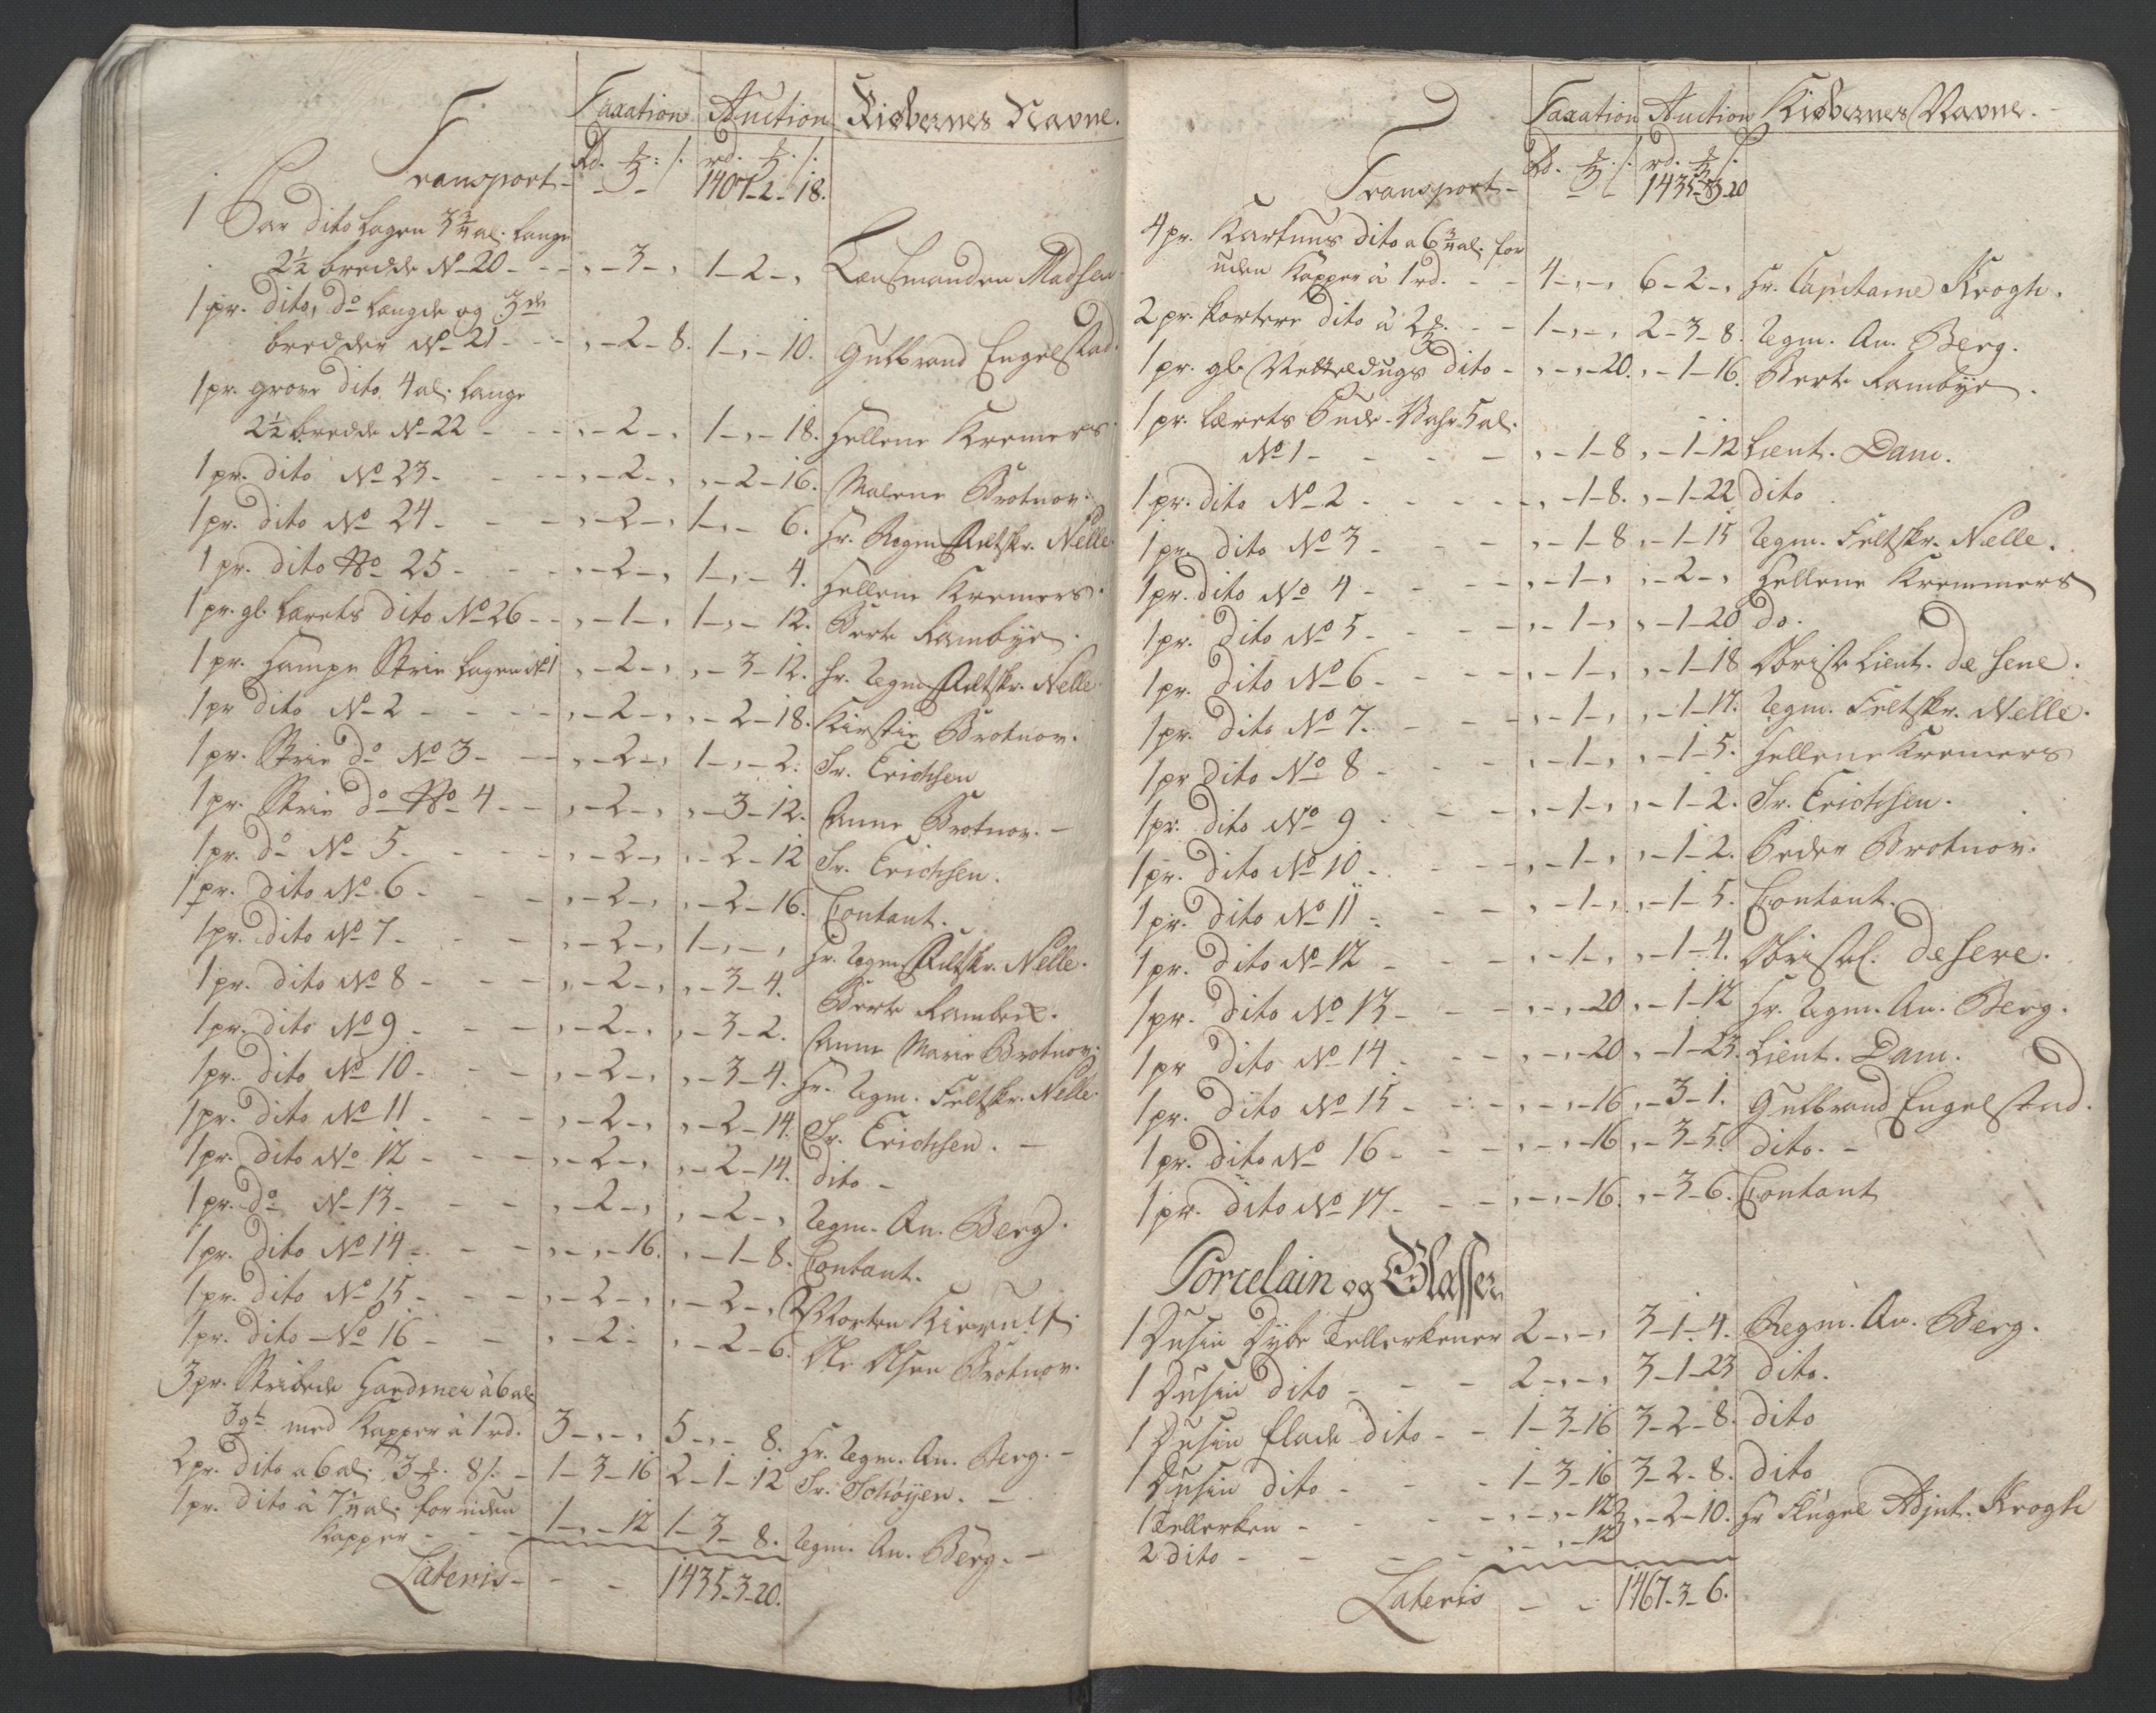 Taxation Auction Kiøbernes Navne.
Rd. ℔: s. rd. ℔. s.
Transport - - 3 - 1407-2-18.
1 Par dito Lagen 3¾ al. Lange
2½ bredde No 20 - - - „-3-„ 1-2-„ Lensmanden Madsen
1 pr. dito, do Længde og 3de
bredder No 21 - - - „-2-8. 1-„-10. Gulbrand Engelstad.
1 pr. grove dito, 4 al. Lange
2½ bredde No 22 - - - „-2-„ 1-„-18. Hellene Kremers
1 pr. dito No 23 - - - „-2-„ „-2-16. Malene Brotnov.
1 pr. dito No 24 - - - „-2-„ 1-„-6. Hr. Regm. Feltskr. Nelle.
1 pr. dito No 25 - - - „-2-„ 1-„-4. Hellene Kremers.
1 pr. gl. Lærets dito No 26 - - „-1-„ 1-„-12. Berte Rambye.
1 pr. Hampe Strie Lagen No 1 „-2-„ „-3-12. Hr. Regm. Feltskr. Nelle
1 pr dito No 2 - - - - „-2-„ „-2-18. Kirstie Brotnov.
1 pr. Strie do No 3 - - - „-2-„ 1-„-2. Sr. Erichsen
1 pr. Strie do No 4 - - „-2-„ „-3-12. Anne Brotnov. -
1 pr. do No 5 - - - - „-2-„ „-2-12 Sr. Erichsen.
1 pr. dito No 6 - - - „-2-„ „-2-16. Contant.
1 pr. dito No 7 - - - „-2-„ 1-„-„ Hr. Regm. Feltskr. Nelle.
1 pr. dito No 8 - - - „-2-„ „-3-4. Berte Rambye.
1 pr. dito No 9 - - - „-2-„ „-3-2. Anne Marie Brotnov.
1 pr. dito No 10 - - - „-2-„ „-3-4. Hr. Regm. Feltskr. Nelle
1 pr. dito No 11 - - - „-2-„ „-2-14. Sr. Erichsen. -
1 pr. dito No 12 - - - „-2-„ „-2-14. dito -
1 pr. do No 13 - - - „-2-„ „-2-„ Regm. Au. Berg.
1 pr. dito No 14 - - - „-„-16. „-1-8. Contant.
1 pr. dito No 15 - - - „-2-„ „-2-„ Morten Kierulf.
1 pr. dito No 16 - - „-2- „-2-6. Ole Olsen Brotnov.
3 pr. Stribede Gardiner à 6 al.
3 qt. med Kapper à 1 rd. 3-„-„ 5-„-8. Hr. Regm. Au. Berg. -
2 pr. dito a 6 al. 3 ℔. 8 s. - 1-3-16 2-1-12 Sr. Schøyen. -
1 pr. dito à 7¼ al. foruden
Kapper - - - 1-„-12 1-3-8. Regm. Au. Berg. -
Lateris - - - 1435-3-20.
Taxation Auction Kiøbernes Navne. -
Rd. ℔. s. rd. ℔ s.
Transport - - 1435-3-20
4 pr. Kartuns dito a 6¾ al. for
uden Kapper à 1 rd. - - 4-„-„ 6-2-„ Hr. Capitaine Krogh.
2 pr. kortere dito à 2 ℔. - - 1-„-„ 2-3-8. Regm. Au. Berg.
1 pr. gl. Netteldugs dito - „-„-20. „-1-16. Berte Rambye.
1 pr. Lærets Pude-Vahr 5 al.
No 1 - - - - „-1-8 „-1-12 Lieut. Dam.
1 pr. dito No 2 - - - - „-1-8. „-1-22 dito
1 pr. dito No 3 - - - „-1-8 „-1-15 Regm. Feltskr. Nelle.
1 pr. dito No 4 - - - „-1-„ „-2-„ Hellene Kremmers
1 pr. dito No 5 - - - „-1-„ „-1-20 do.
1 pr. dito No 6 - - - „-1-„ „-1-18 Obrist Lieut. de Sene.
1 pr. dito No 7. - - - „-1-„ „-1-17. Regm. Feltskr. Nelle.
1 pr dito No 8 - - - „-1-„ „-1-5. Hellene Kremers
1 pr. dito No 9 - - - „-1-„ „-1-2. Sr. Erichsen.
1 pr. dito No 10 - - - „-1-„ „-1-2. Peder Brotnov.
1 pr. dito No 11 - - - „-1-„ „-1-5. Contant.
1 pr. dito No 12 - - - „-1-„ „-1-4. Obristl. de Sere.
1 pr. dito No 13 - - - „-„-20 „-1-12 Hr. Regm. Au. Berg.
1 pr dito No 14 - - - „-„-20 „-1-23. Lieut. Dam.
1 pr. dito No 15 - - - „-„-16 „-3-1. Gulbrand Engelstad.
1 pr. dito No 16 - - - „-„-16 „-3-5. dito. -
1 pr. dito No 17 - - - „-„-16. „-3-6. Contant
Porcelain og Glasser
1 Dusin Dybe Tellerkener 2-„-„ 3-1-4. Regm. Au. Berg.
1 Dusin dito - - - 2-„-„ 3-1-23 dito.
1 Dusin flade dito - - 1-3-16 3-2-8. dito
1 Dusin dito - - - 1-3-16 3-2-8. dito
1 Tellerken - - - - „-„-12 „-2-10. Hr Flügel Adjnt. Krogh
2 dito - - - - „-„-12
Lateris - - 1467-3-6.